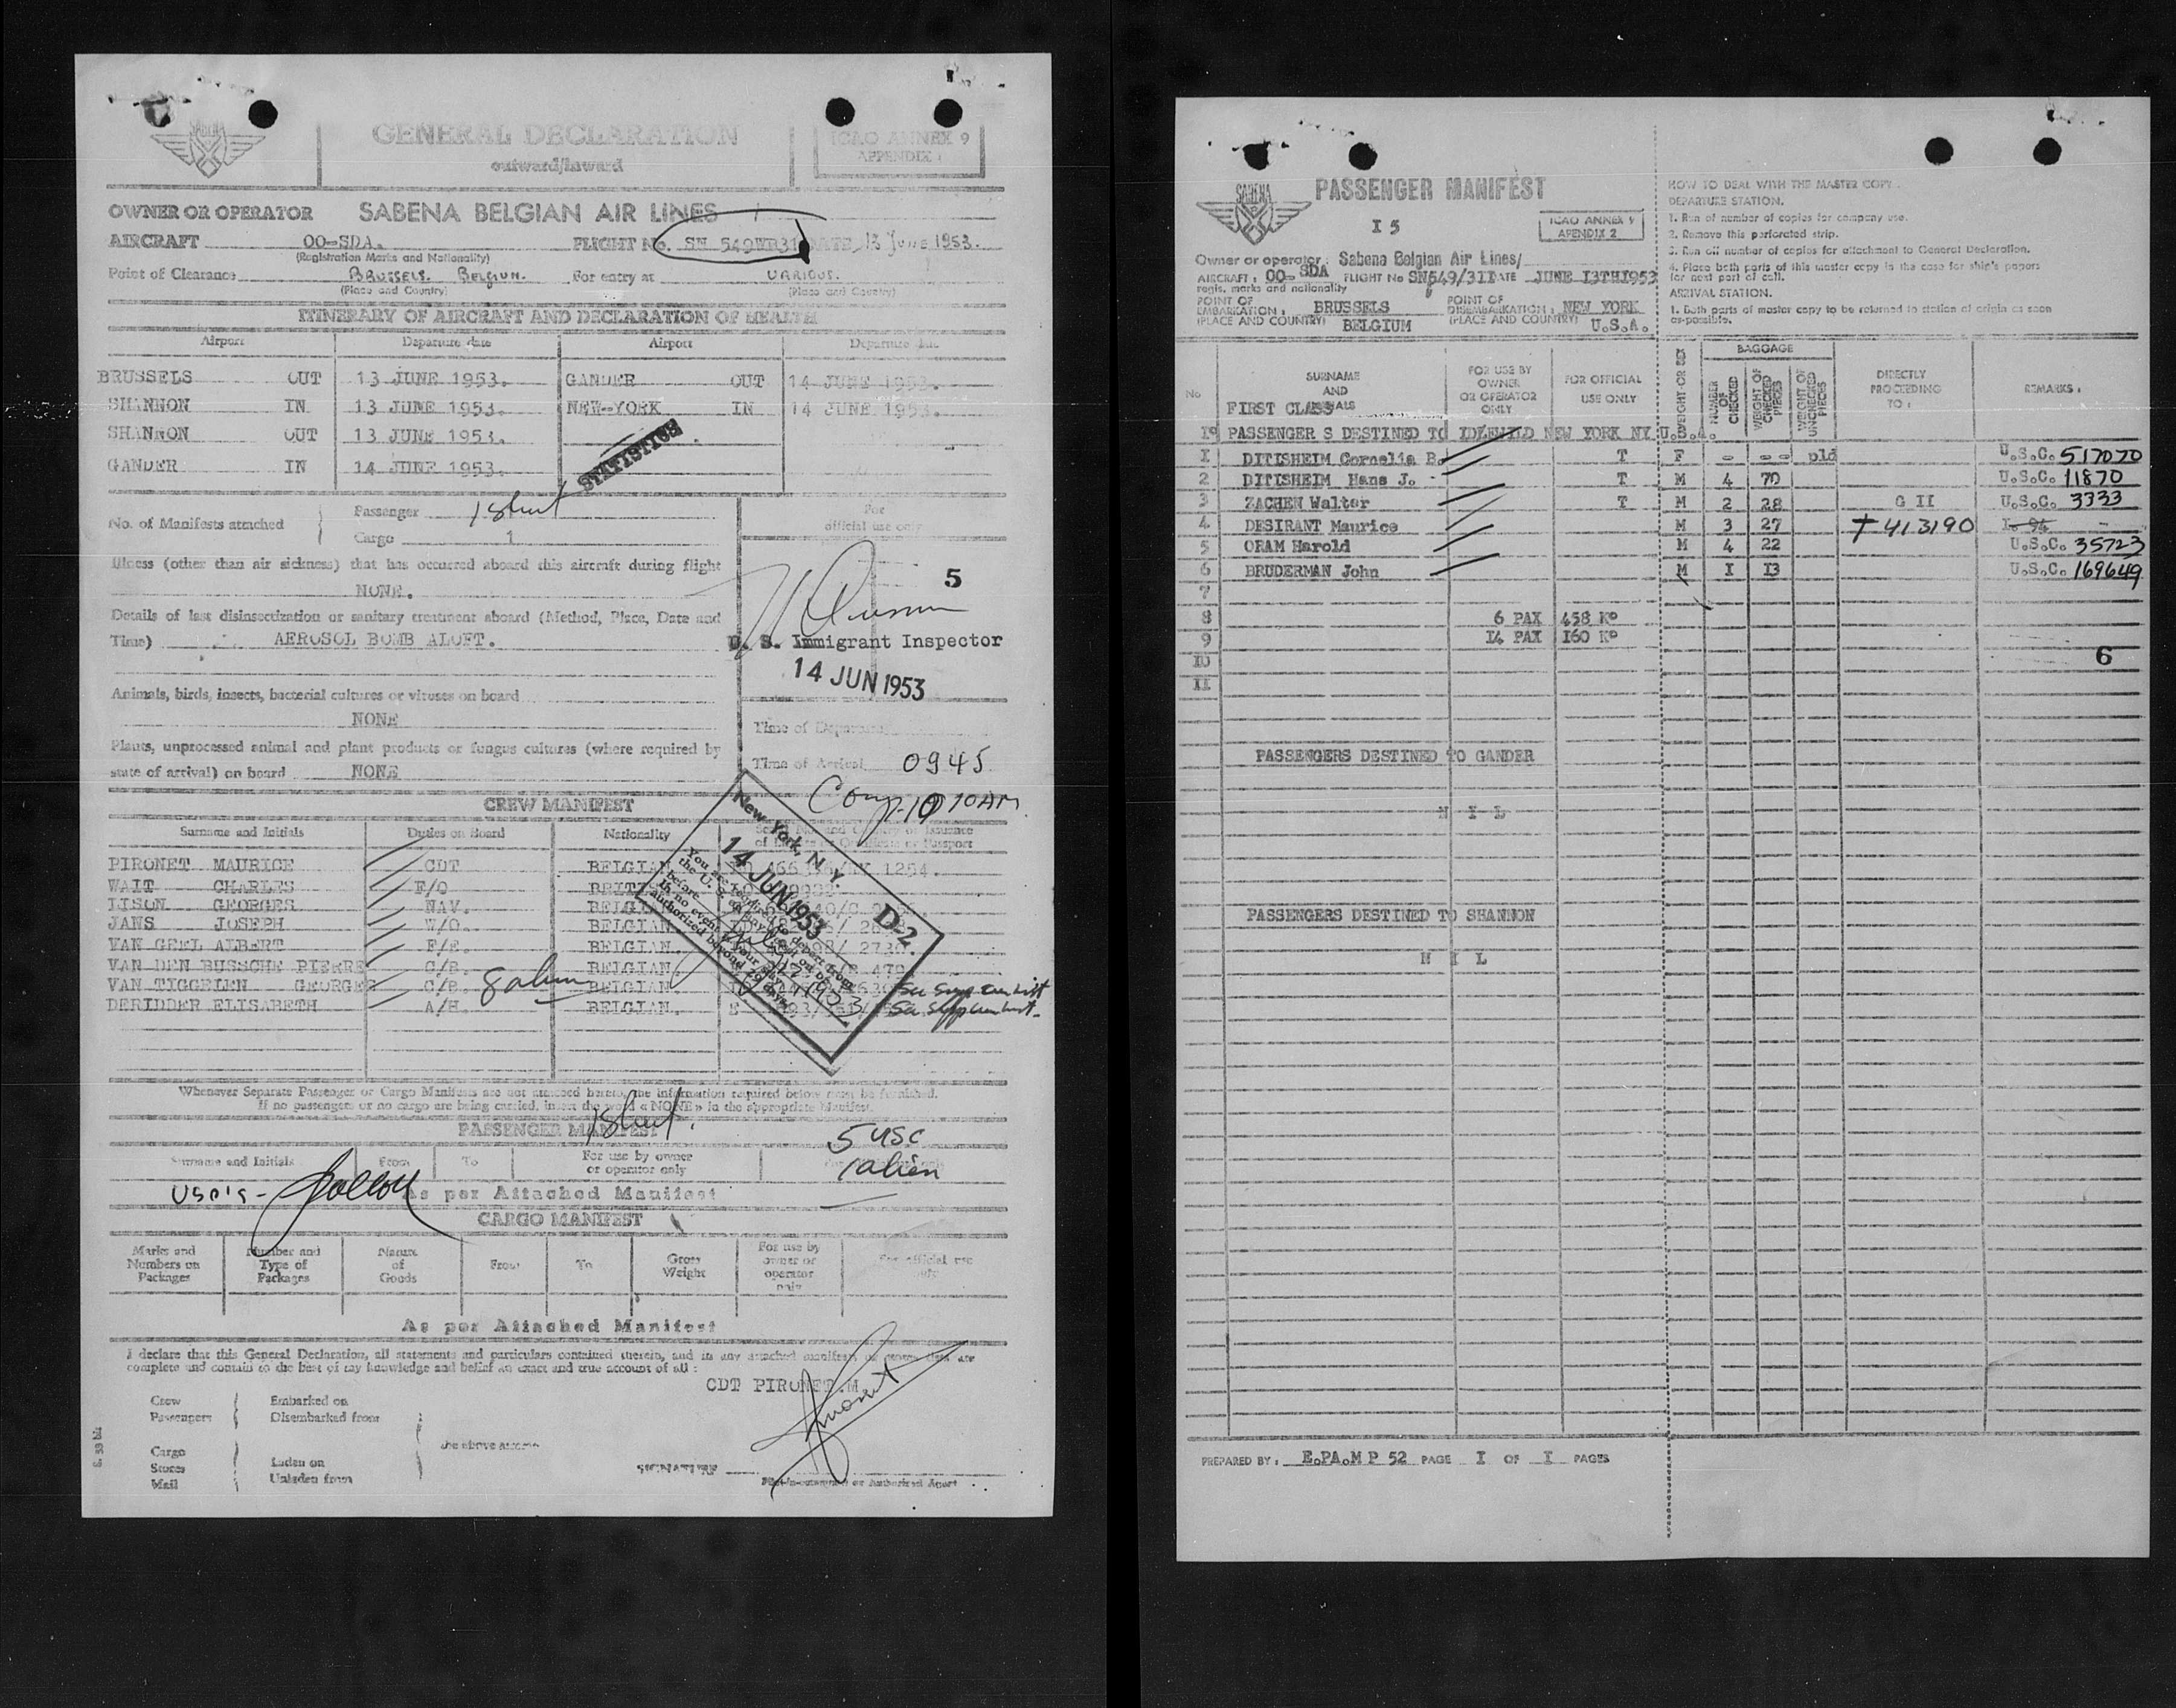 SABENA
GENERAL DECLARATION
outward/inward
ICAO ANNEX 9
APPENDIX 1
OWNER OR OPERATOR SABENA BELGIAN AIR LINES
AIRCRAFT OO-SDA. FLIGHT No. SN 549WR31 DATE 13 June 1953.
(Registration Marks and Nationality)
Point of Clearance BRUSSELS. BELGIUM. For entry at VARIOUS.
(Place and Country) (Place and Country)
ITINERARY OF AIRCRAFT AND DECLARATION OF HEALTH
Airport Departure date Airport Departure date
BRUSSELS OUT 13 JUNE 1953. GANDER OUT 14 JUNE 1953.
SHANNON IN 13 JUNE 1953. NEW-YORK IN 14 JUNE 1953.
SHANNON OUT 13 JUNE 1953.
STATISTICS
GANDER IN 14 JUNE 1953.
No. of Manifests attached
Passenger 1 Sheet
Cargo 1
For official use only
Illness (other than air sickness) that has occurred aboard this aircraft during flight
NONE.
5
Details of last disinsectization or sanitary treatment aboard (Method, Place, Date and
Time) AEROSOL BOMB ALOFT.
U. S. Immigrant Inspector
14 JUN 1953
Animals, birds, insects, bacterial cultures or viruses on board
NONE
Time of Departure
Plants, unprocessed animal and plant products or fungus cultures (where required by
state of arrival) on board NONE
Time of Arrival 0945
CREW MANIFEST
Surname and Initials Duties on Board Nationality
PIRONET MAURICE CDT BELGIAN
WAIT CHARLES F/O BRITISH
LISON GEORGES NAV. BELGIAN
JANS JOSEPH W/O. BELGIAN
VAN GEEL ALBERT F/E. BELGIAN
VAN DEN BUSSCHE PIERRE C/R. BELGIAN.
VAN TIGGELEN GEORGES C/R. BELGIAN.
DERIDDER ELISABETH A/H. BELGIAN.
8 alien
New York, N.Y.
14 JUN 1953
D-2.
Whenever Separate Passenger or Cargo Manifests are not attached hereto, the information required below must be furnished.
If no passengers or no cargo are being carried, insert the word « NONE » in the appropriate Manifest.
1 Sheet.
PASSENGER MANIFEST
5 USC
1 alien
Surname and Initials From To For use by owner or operator only
As per Attached Manifest
CARGO MANIFEST
Marks and Numbers on Packages
Number and Type of Packages
Nature of Goods
From To
Gross Weight
For use by owner or operator only
For official use only
As per Attached Manifest
I declare that this General Declaration, all statements and particulars contained therein, and in any attached manifests or general lists are
complete and contain to the best of my knowledge and belief an exact and true account of all :
CDT PIRONET.M
Crew Embarked on
Passengers Disembarked from
the above aircraft
Cargo
Stores Laden on
Mail Unladen from
SIGNATURE
Pilot-in-command or Authorized Agent
SABENA
PASSENGER MANIFEST
I 5
ICAO ANNEX 9
APENDIX 2
Owner or operator : Sabena Belgian Air Lines/
AIRCRAFT : OO- SDA FLIGHT No SN549/311 DATE JUNE I3THI953
regis. marks and nationality
POINT OF EMBARKATION : BRUSSELS
(PLACE AND COUNTRY) BELGIUM
POINT OF DISEMBARKATION : NEW YORK
(PLACE AND COUNTRY) U.S.A.
HOW TO DEAL WITH THE MASTER COPY.
DEPARTURE STATION.
1. Run of number of copies for company use.
2. Remove this perforated strip.
3. Run off number of copies for attachment to General Declaration.
4. Place both parts of this master copy in the case for ship's papers
for next port of call.
ARRIVAL STATION.
1. Both parts of master copy to be returned to station of origin as soon
as-possible.
No
SURNAME AND INITIALS
FOR USE BY OWNER OR OPERATOR ONLY
FOR OFFICIAL USE ONLY
WEIGHT OR SEX
BAGGAGE
NUMBER OF CHECKED
WEIGHT OF CHECKED PIECES
WEIGHT OF UNCHECKED PIECES
DIRECTLY PROCEEDING TO :
REMARKS :
FIRST CLASS
I° PASSENGER S DESTINED TO IDLEWILD NEW YORK NY U.S.A.
I DITISHEIM Cornelia B. T F - - - pld U.S.C. 517070
2 DITISHEIM Hans J. T M 4 70 U.S.C. 11870
3 ZACHEN Walter T M 2 28 G II U.S.C. 3333
4 DESIRANT Maurice M 3 27 T 413190 I. 94
5 ORAM Harold M 4 22 U.S.C. 35723
6 BRUDERMAN John M I I3 U.S.C. 169649
7
8 6 PAX 458 K°
9 I4 PAX I60 K°
10
11
6
PASSENGERS DESTINED TO GANDER
N I L
PASSENGERS DESTINED TO SHANNON
N I L
PREPARED BY : E.PA.M P 52 PAGE I OF I PAGES